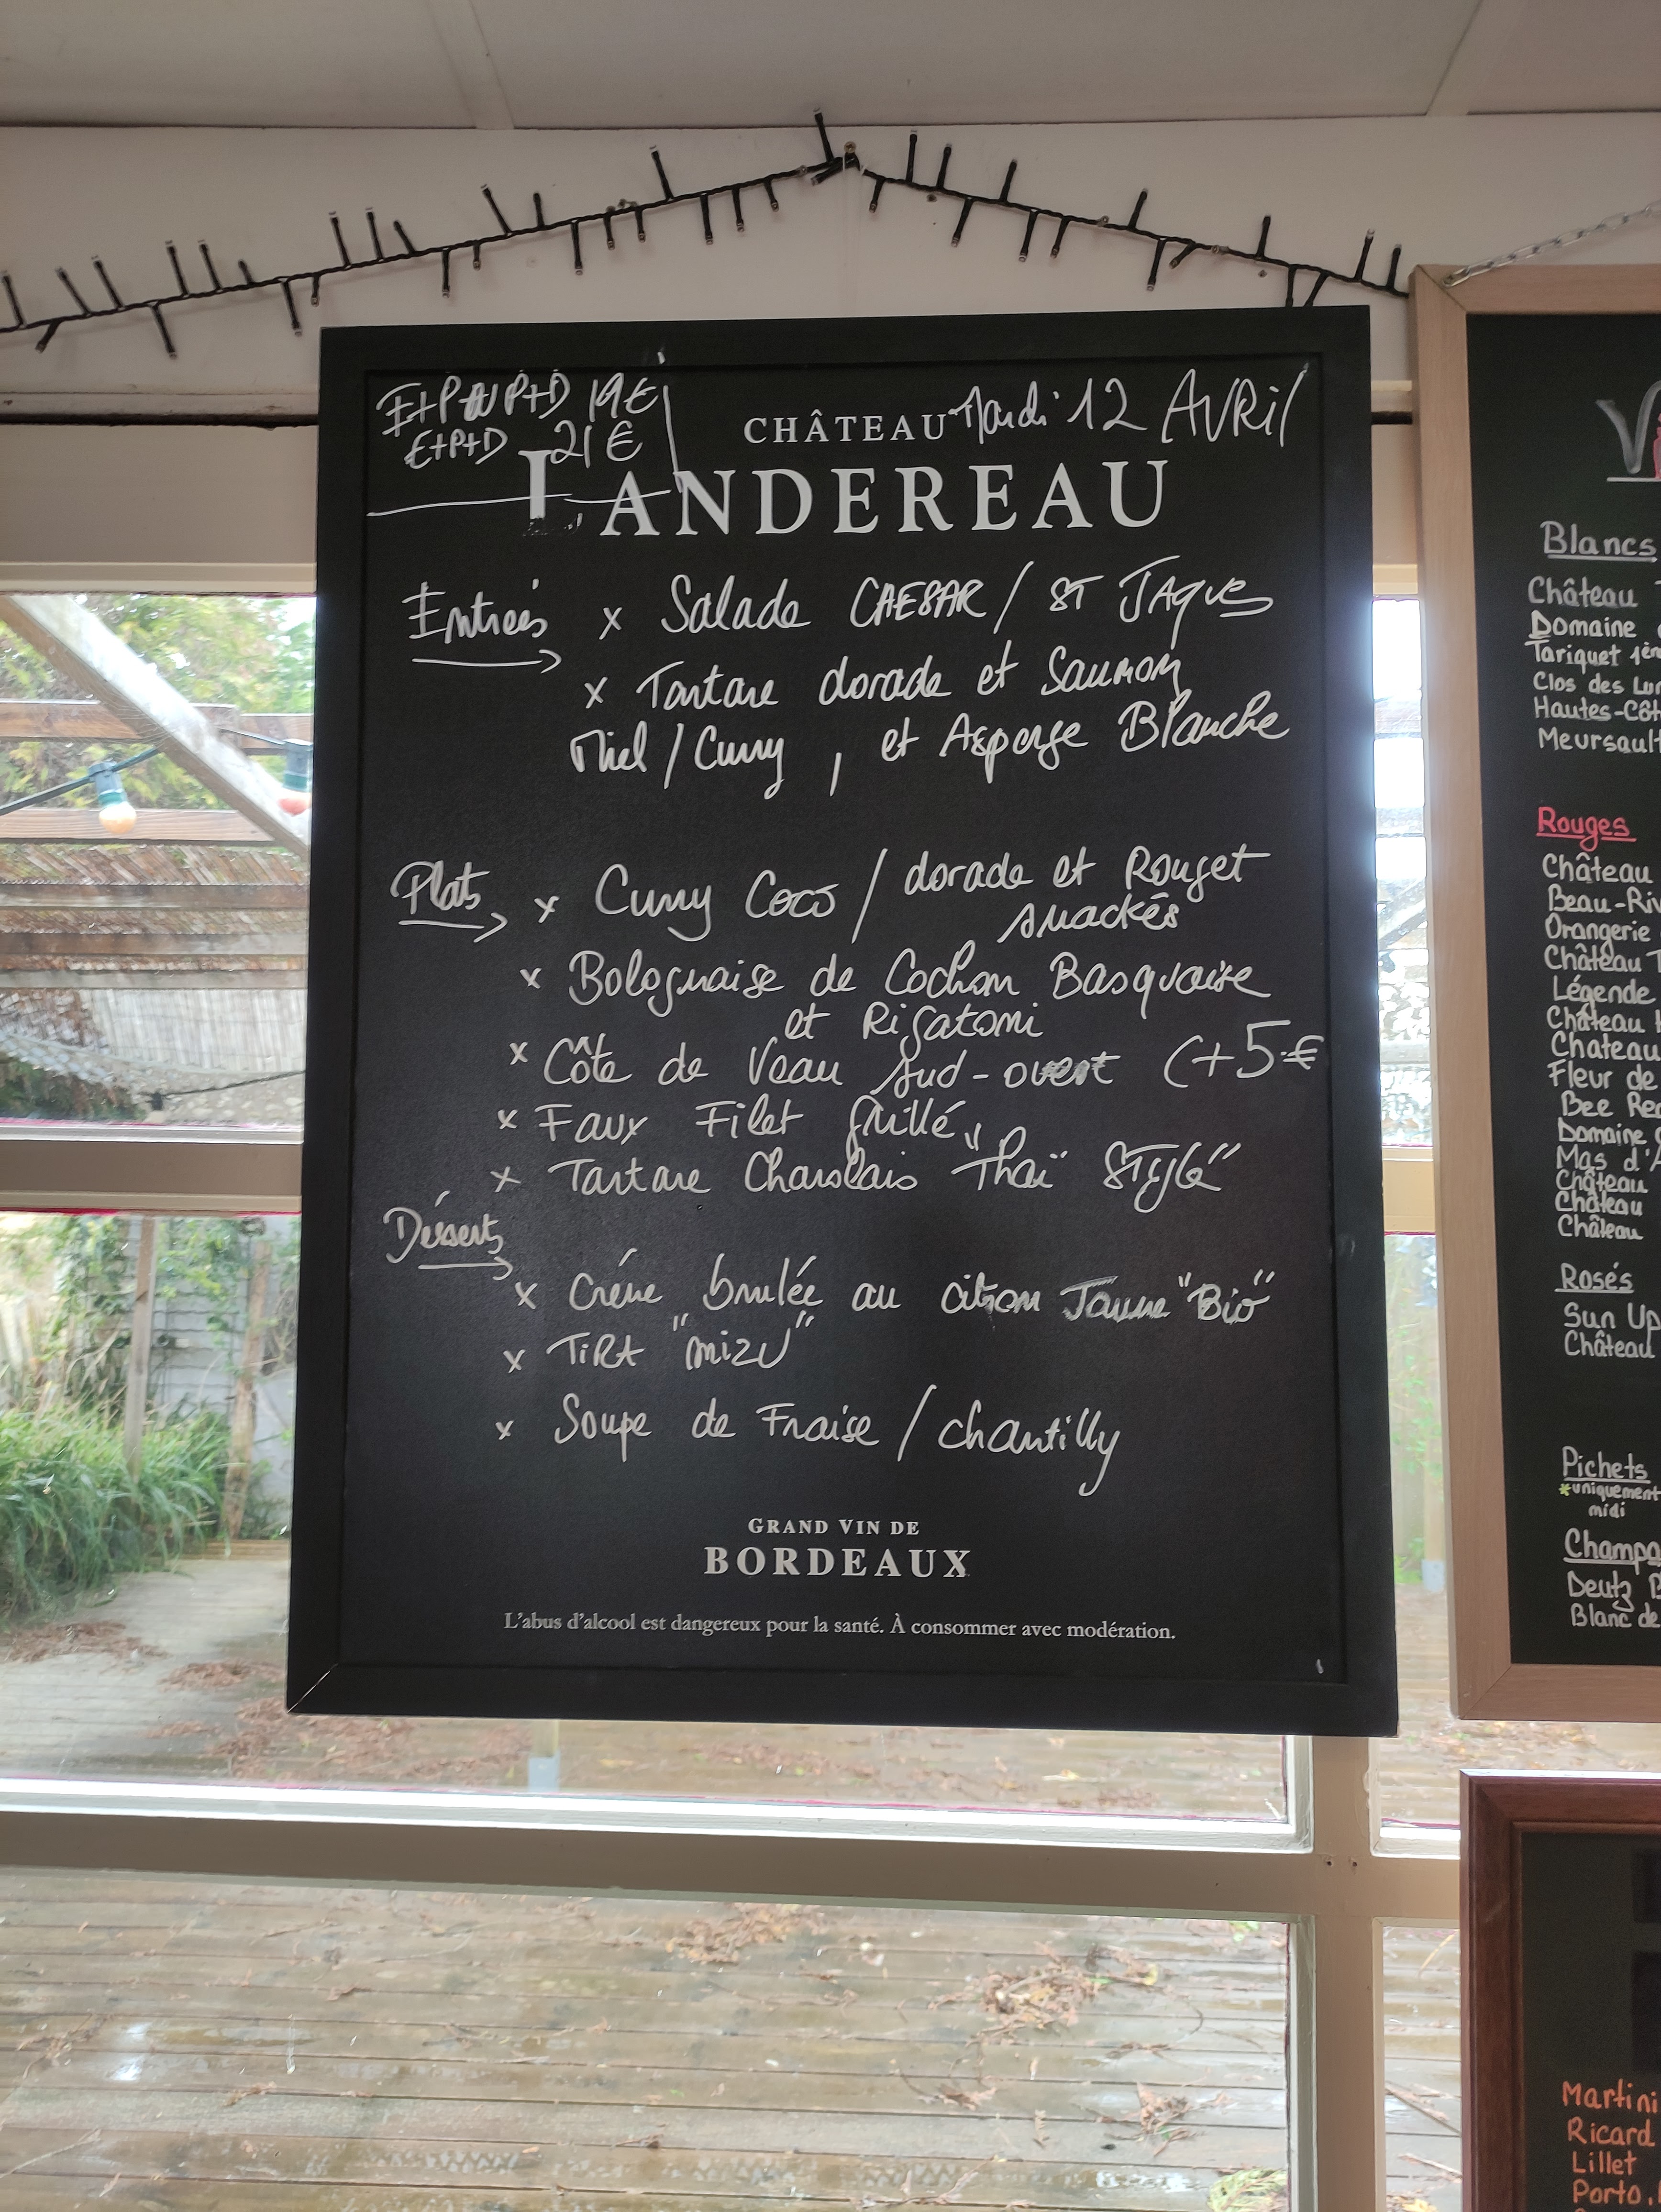 E+P ou P+D 19€
E+P+D 21€
Mardi 12 AVRil
CHÂTEAU
LANDEREAU
Entrées
x Salade CAESAR / ST JAques
x Tartare dorade et Saumon
Miel / Curry , et Asperge Blanche
Plats
x Curry Coco / dorade et Rouget
snackés
x Bolognaise de Cochon Basquaise
et Rigatoni
x Côte de Veau Sud-ouest (+5€
x Faux Filet grillé
x Tartare Charolais "Thaï STYLE"
Désserts
x Créme brulée au citron Jaune "Bio"
x TiRA "mizu"
x Soupe de Fraise / chantilly
GRAND VIN DE
BORDEAUX
L'abus d'alcool est dangereux pour la santé. À consommer avec modération.
Blancs
Château
Domaine
Tariquet 1èr
Clos des Lun
Hautes-Côt
Meursault
Rouges
Château
Beau-Riv
Orangerie
Château T
Légende
Château
Chateau
Fleur de
Bee Red
Domaine
Mas d'A
Château
Château
Château
Rosés
Sun Up
Château
Pichets
*uniquement
midi
Champa
Deutz B
Blanc de
Martini
Ricard
Lillet
Porto,